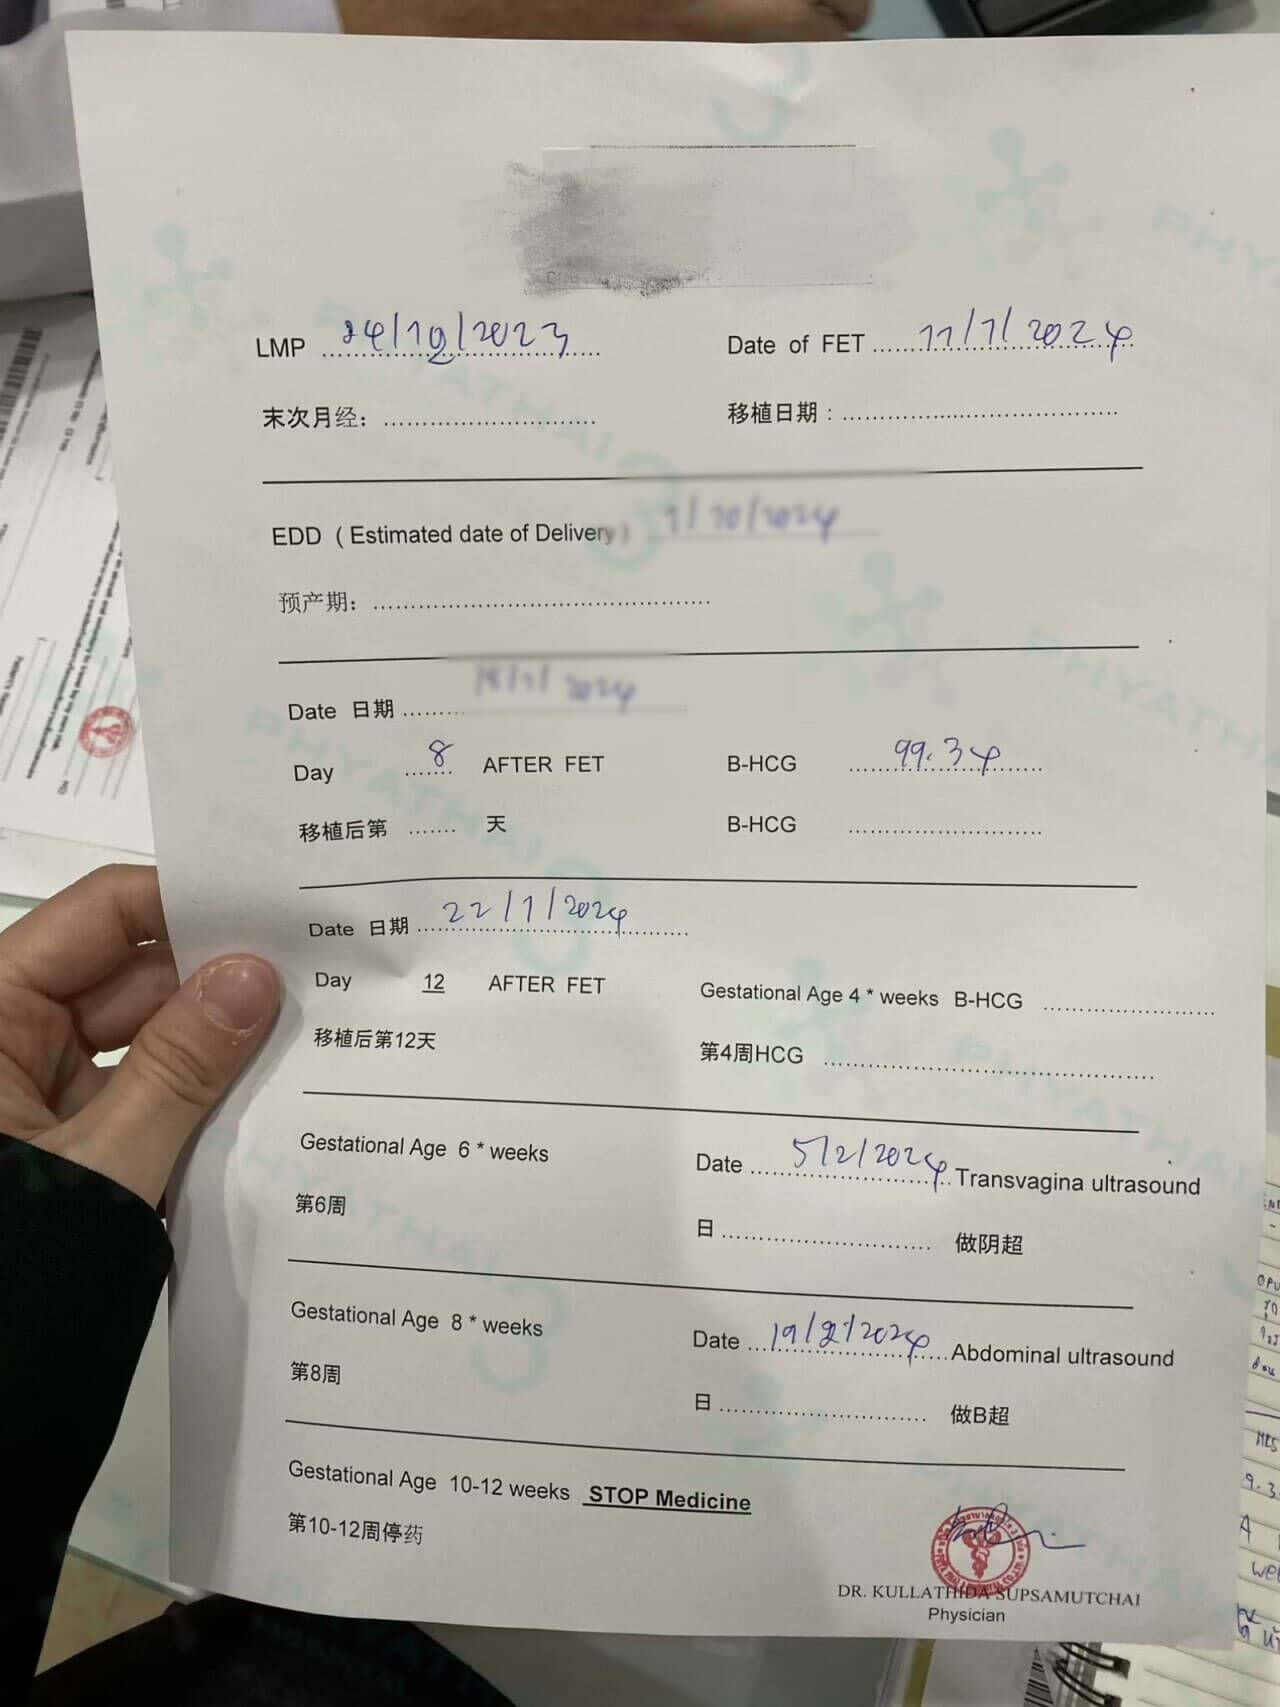 LMP 24/12/2023 Date of FET 11/1/2024
末次月经: 移植日期:
EDD (Estimated date of Delivery) /10/2024
预产期:
Date 日期 2024
Day 8 AFTER FET B-HCG 99.34
移植后第 天 B-HCG
Date 日期 22/1/2024
Day 12 AFTER FET Gestational Age 4 * weeks B-HCG
移植后第12天 第4周HCG
Gestational Age 6 * weeks Date 5/2/2024 Transvagina ultrasound
第6周 日 做阴超
Gestational Age 8 * weeks Date 19/2/2024 Abdominal ultrasound
第8周 日 做B超
Gestational Age 10-12 weeks STOP Medicine
第10-12周停药
DR. KULLATHIDA SUPSAMUTCHAI
Physician
PHYATHAI